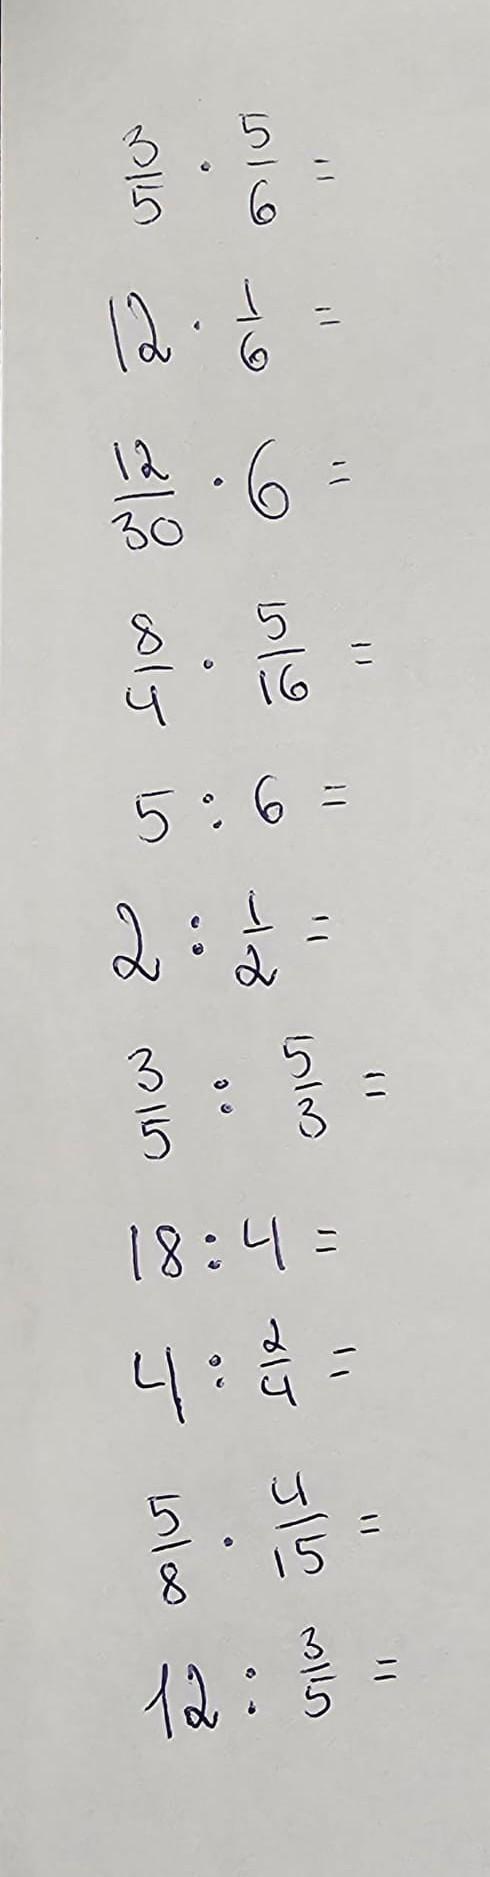 3/5 · 5/6 =
12 · 1/6 =
12/30 · 6 =
8/4 · 5/16 =
5 : 6 =
2 : 1/2 =
3/5 : 5/3 =
18 : 4 =
4 : 2/4 =
5/8 · 4/15 =
12 : 3/5 =